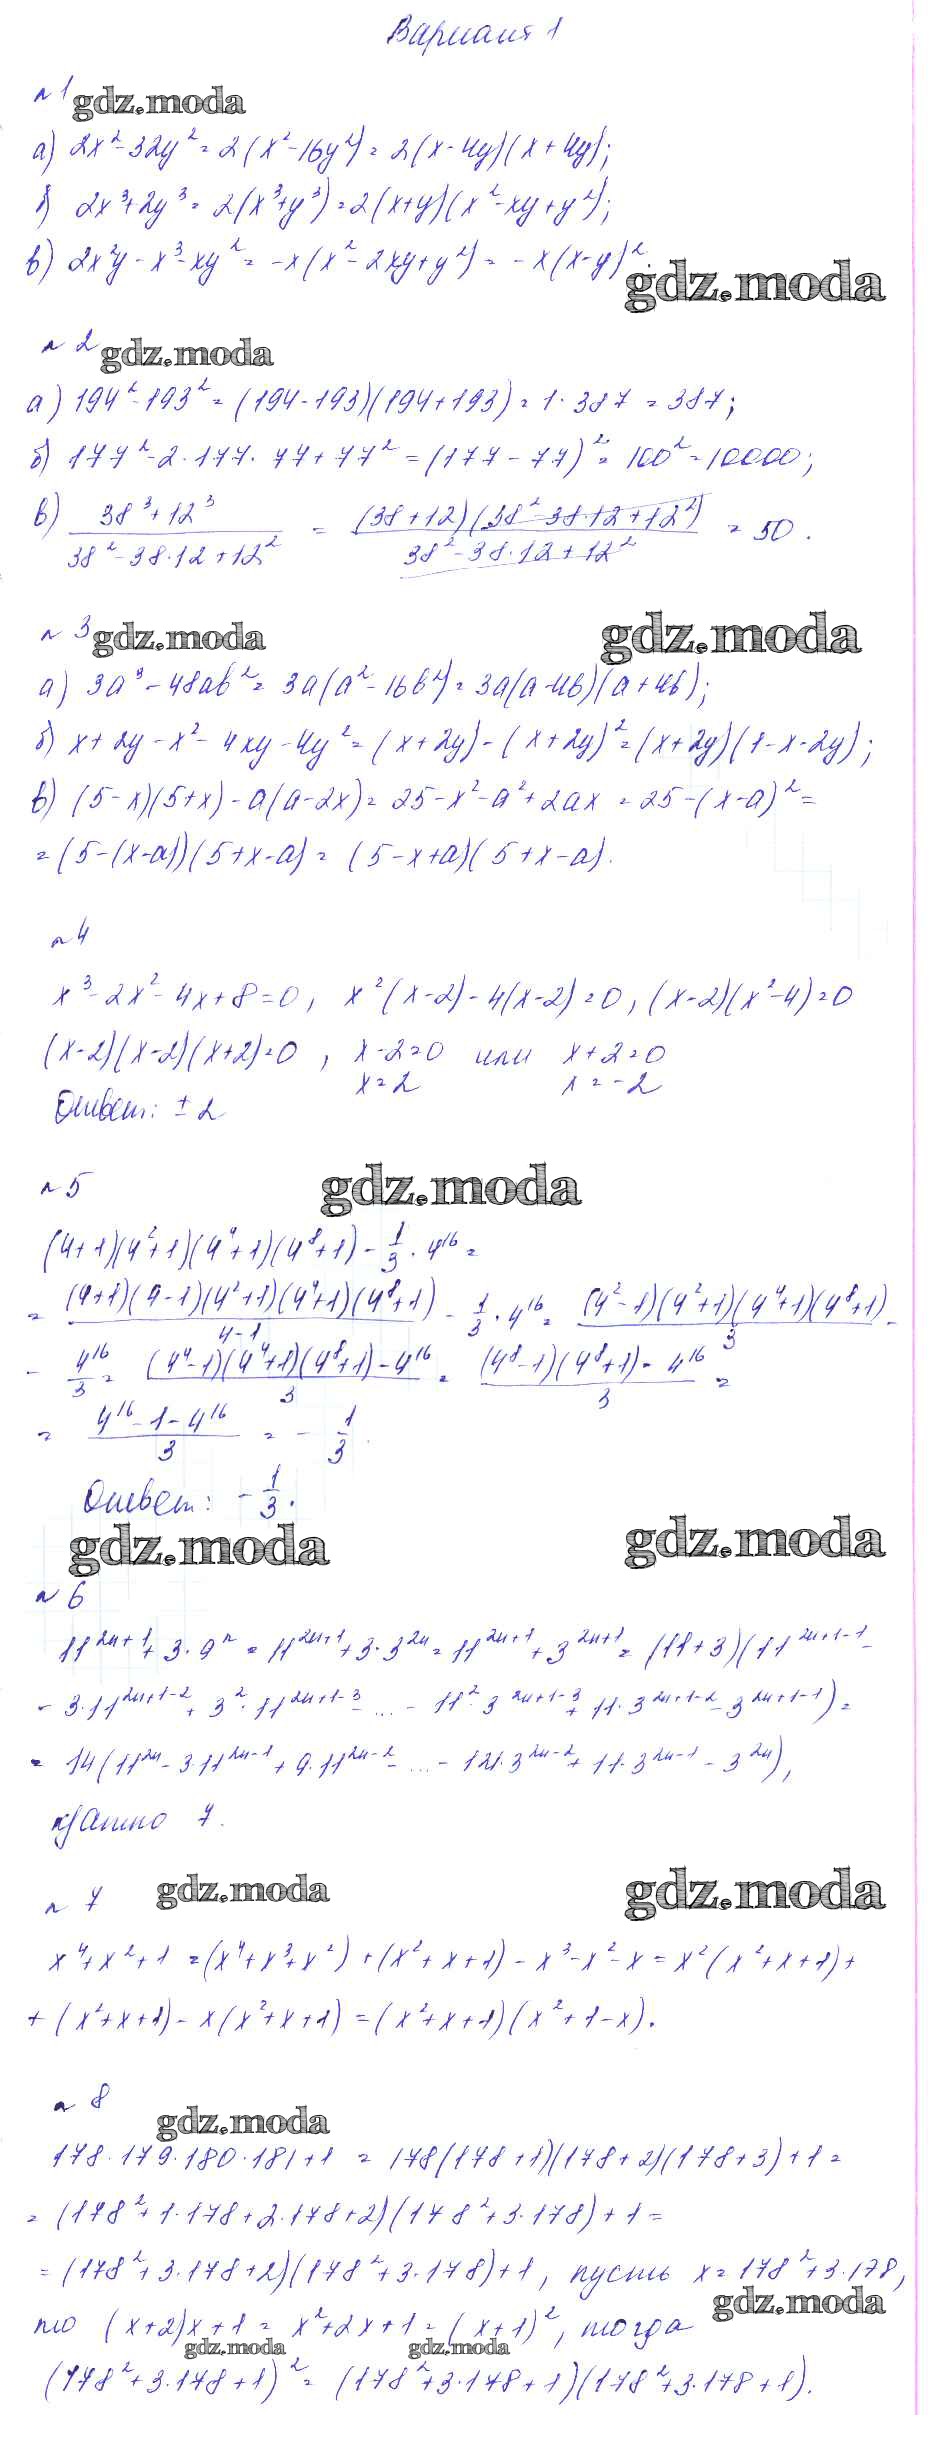 Вариант 1
№ 1 gdz.moda
а) 2x² - 32y² = 2(x² - 16y²) = 2(x - 4y)(x + 4y);
б) 2x³ + 2y³ = 2(x³ + y³) = 2(x + y)(x² - xy + y²);
в) 2x²y - x³ - xy² = -x(x² - 2xy + y²) = -x(x - y)².
gdz.moda
№ 2 gdz.moda
а) 194² - 193² = (194 - 193)(194 + 193) = 1 · 387 = 387;
б) 177² - 2 · 177 · 77 + 77² = (177 - 77)² = 100² = 10000;
в) (38³ + 12³)/(38² - 38·12 + 12²) = ((38 + 12)(38² - 38·12 + 12²))/(38² - 38·12 + 12²) = 50.
№ 3 gdz.moda gdz.moda
а) 3a³ - 48ab² = 3a(a² - 16b²) = 3a(a - 4b)(a + 4b);
б) x + 2y - x² - 4xy - 4y² = (x + 2y) - (x + 2y)² = (x + 2y)(1 - x - 2y);
в) (5 - x)(5 + x) - a(a - 2x) = 25 - x² - a² + 2ax = 25 - (x - a)² =
= (5 - (x - a))(5 + x - a) = (5 - x + a)(5 + x - a).
№ 4
x³ - 2x² - 4x + 8 = 0, x²(x - 2) - 4(x - 2) = 0, (x - 2)(x² - 4) = 0
(x - 2)(x - 2)(x + 2) = 0, x - 2 = 0 или x + 2 = 0
x = 2 x = -2
Ответ: ± 2
№ 5 gdz.moda
(4 + 1)(4² + 1)(4⁴ + 1)(4⁸ + 1) - 1/3 · 4¹⁶ =
= ((4 + 1)(4 - 1)(4² + 1)(4⁴ + 1)(4⁸ + 1))/(4 - 1) - 1/3 · 4¹⁶ = ((4² - 1)(4² + 1)(4⁴ + 1)(4⁸ + 1))/3 -
- 4¹⁶/3 = ((4⁴ - 1)(4⁴ + 1)(4⁸ + 1) - 4¹⁶)/3 = ((4⁸ - 1)(4⁸ + 1) - 4¹⁶)/3 =
= (4¹⁶ - 1 - 4¹⁶)/3 = - 1/3.
Ответ: - 1/3.
gdz.moda gdz.moda
№ 6
11²ⁿ⁺¹ + 3 · 9ⁿ = 11²ⁿ⁺¹ + 3 · 3²ⁿ = 11²ⁿ⁺¹ + 3²ⁿ⁺¹ = (11 + 3)(11²ⁿ⁺¹⁻¹ -
- 3 · 11²ⁿ⁺¹⁻² + 3² · 11²ⁿ⁺¹⁻³ - ... - 11² · 3²ⁿ⁺¹⁻³ + 11 · 3²ⁿ⁺¹⁻² - 3²ⁿ⁺¹⁻¹) =
= 14(11²ⁿ - 3 · 11²ⁿ⁻¹ + 9 · 11²ⁿ⁻² - ... - 121 · 3²ⁿ⁻² + 11 · 3²ⁿ⁻¹ - 3²ⁿ),
кратно 7.
№ 7 gdz.moda gdz.moda
x⁴ + x² + 1 = (x⁴ + x³ + x²) + (x² + x + 1) - x³ - x² - x = x²(x² + x + 1) +
+ (x² + x + 1) - x(x² + x + 1) = (x² + x + 1)(x² + 1 - x).
№ 8
gdz.moda
178 · 179 · 180 · 181 + 1 = 178(178 + 1)(178 + 2)(178 + 3) + 1 =
= (178² + 1 · 178 + 2 · 178 + 2)(178² + 3 · 178) + 1 =
= (178² + 3 · 178 + 2)(178² + 3 · 178) + 1, пусть x = 178² + 3 · 178,
gdz.moda
то (x + 2)x + 1 = x² + 2x + 1 = (x + 1)², тогда
gdz.moda gdz.moda
(178² + 3 · 178 + 1)² = (178² + 3 · 178 + 1)(178² + 3 · 178 + 1).